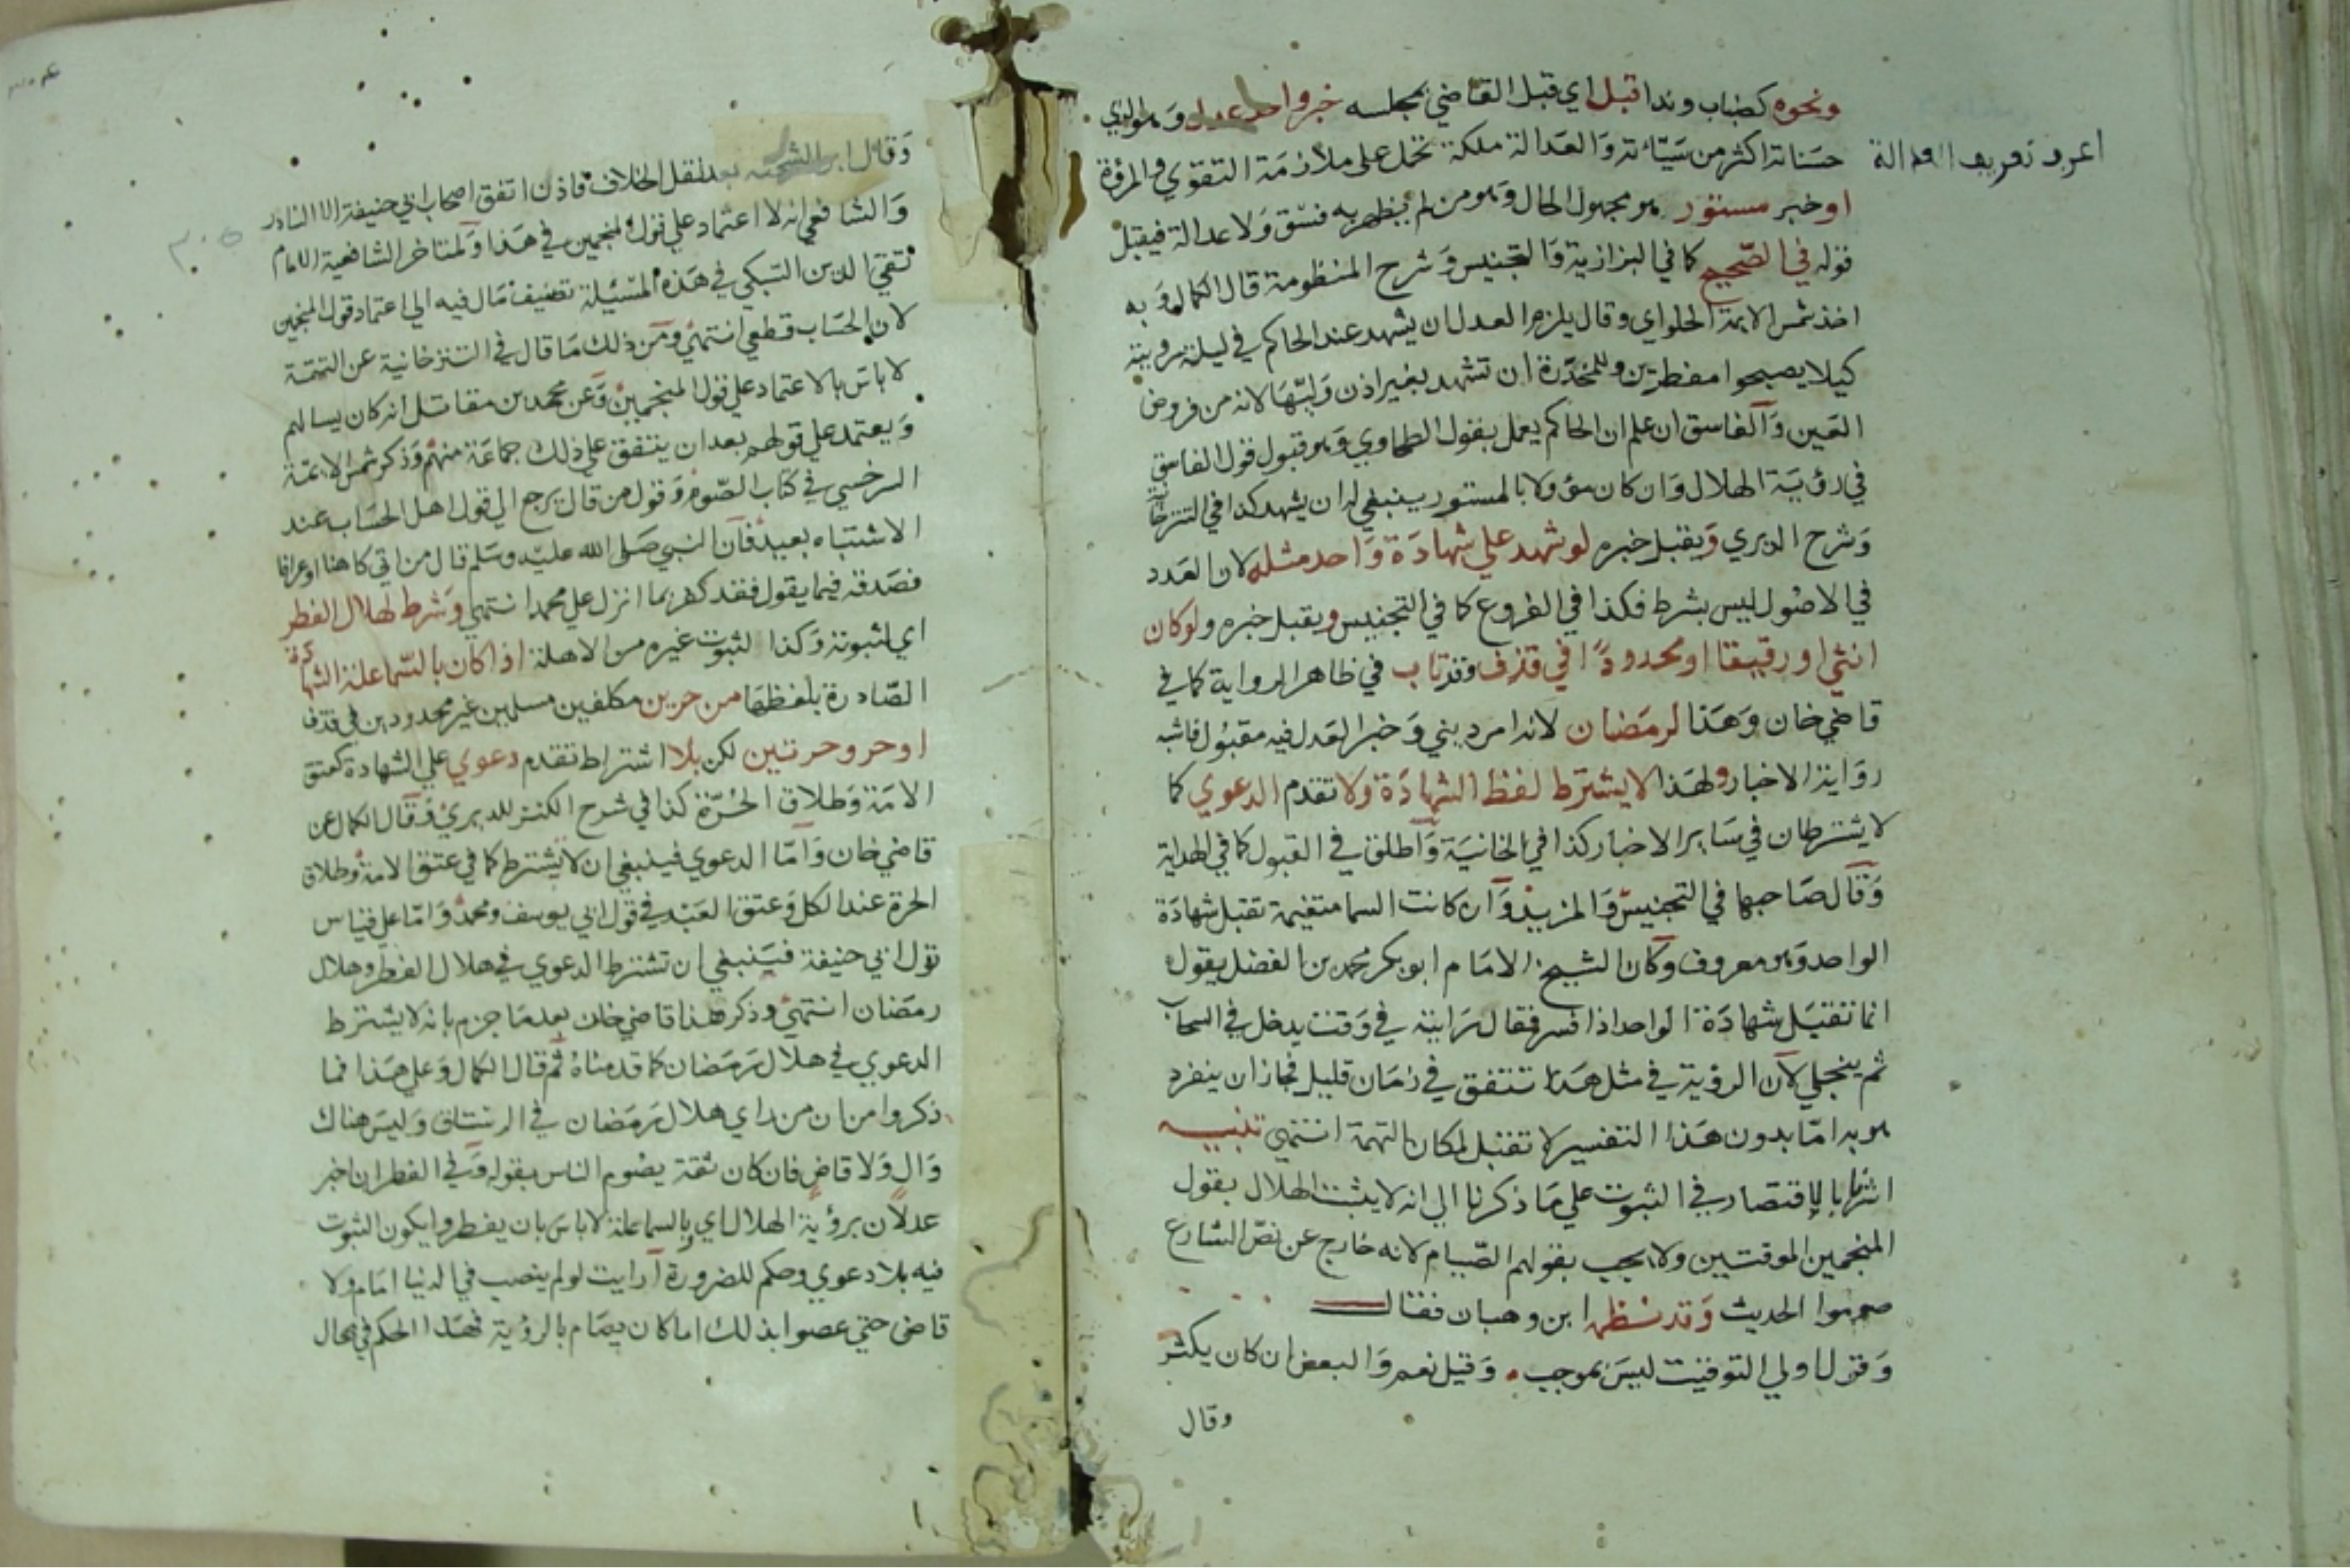 ونحوه كضباب وندا قبل اي قبل القاضي بمجلسه خبر واحد عدل وهو الذي
حسناته اكثر من سيئاته والعدالة ملكة تحمل على ملازمة التقوي والمروة
اعرف تعريف العدالة
او خبر مستور هو مجهول الحال وهو من لم يظهر به فسق ولا عدالة فيقبل
قوله في الصحيح كما في البزازية والتجنيس وشرح المنظومة قال الكمال وبه
اخذ شمس الايمة الحلواي وقال يلزم العدل ان يشهد عند الحاكم في ليلة رويته
كيلا يصبحوا مفطرين وللمخدرة ان تشهد بغير اذن وليها لانه من فروض
العين والفاسق ان علم ان الحاكم يعمل بقول الطحاوي وهو قبول قول الفاسق
في رؤية الهلال وان كان مؤولا بالمستور ينبغي له ان يشهد كذا في التترخا
وشرح الديري ويقبل خبره لو شهد علي شهادة واحد مثله لان العدد
في الاصول ليس بشرط فكذا في الفروع كما في التجنيس ويقبل خبره ولو كان
انثي او رقيقا او محدودا في قذف وقد تاب في ظاهر الرواية كما في
قاضي خان وهذا لرمضان لانه امر ديني وخبر العدل فيه مقبول فاشبه
رواية الاخبار ولهذا لا يشترط لفظ الشهادة ولا تقدم الدعوي كما
لا يشترطان في ساير الاخبار كذا في الخانية واطلق في القبول كما في الهداية
وقال صاحبها في التجنيس والمزيد وان كانت السما متغيمة تقبل شهادة
الواحد وهو معروف وكان الشيخ الامام ابو بكر محمد بن الفضل يقول
انما تقبل شهادة الواحد اذا فسر فقال رايته في وقت يدخل في السحاب
ثم ينجلي لان الرؤية في مثل هذا تتفق في زمان قليل فجاز ان ينفرد
هو به اما بدون هذا التفسير لا تقبل لمكان التهمة انتهي تنبيه
اشرنا بالاقتصار في الثبوت علي ما ذكرنا الي انه لا يثبت الهلال بقول
المنجمين الموقتين ولا يجب بقولهم الصيام لانه خارج عن نص الشارع
صوموا الحديث وقد نظمها ابن وهبان فقال
وقول اولي التوقيت ليس بموجب وقيل نعم والبعض ان كان يكثر
وقال
وقال ابن الشحنه بعد نقل الخلاف فاذن اتفق اصحاب ابي حنيفة الا النادر
والشافعي انه لا اعتماد علي قول المنجمين في هذا ولمتاخر الشافعية الامام
تقي الدين السبكي في هذه المسئلة تصنيف مال فيه الي اعتماد قول المنجمين
لان الحساب قطعي انتهي ومن ذلك ما قال في التترخانية عن التتمة
لا باس بالاعتماد علي قول المنجمين وعن محمد بن مقاتل انه كان يسالهم
ويعتمد علي قولهم بعد ان يتفق علي ذلك جماعة منهم وذكر شمس الائمة
السرخسي في كتاب الصوم وقول من قال يرجع الي قول اهل الحساب عند
الاشتباه بعيد فان النبي صلى الله عليه وسلم قال من اتي كاهنا او عرافا
فصدقه فيما يقول فقد كفر بما انزل علي محمد انتهي وشرط لهلال الفطر
اي لثبوته وكذا لثبوت غيره من الاهلة اذا كان بالسما علة الشهادة
الصادرة بلفظها من حرين مكلفين مسلمين غير محدودين في قذف
او حر وحرتين لكن بلا اشتراط تقدم دعوي علي الشهادة كعتق
الامة وطلاق الحرة كذا في شرح الكنز للديري وقال الكمال عن
قاضي خان واما الدعوي فينبغي ان لا يشترط كما في عتق الامة وطلاق
الحرة عند الكل وعتق العبد في قول ابي يوسف ومحمد واما علي قياس
قول ابي حنيفة فينبغي ان تشترط الدعوي في هلال الفطر وهلال
رمضان انتهي وذكر هذا قاضي خان بعد ما جزم بانه لا يشترط
الدعوي في هلال رمضان كما قدمناه ثم قال الكمال وعلي هذا فما
ذكروا من ان من راي هلال رمضان في الرستاق وليس هناك
وال ولا قاض فان كان ثقة يصوم الناس بقوله وفي الفطر ان اخبر
عدلان برؤية الهلال اي بالسما علة لا باس بان يفطروا يكون الثبوت
فيه بلا دعوي وحكم للضرورة ارايت لو لم ينصب في الدنيا امام ولا
قاض حتي عصوا بذلك اما كان يصام بالرؤية فهذا الحكم في محال